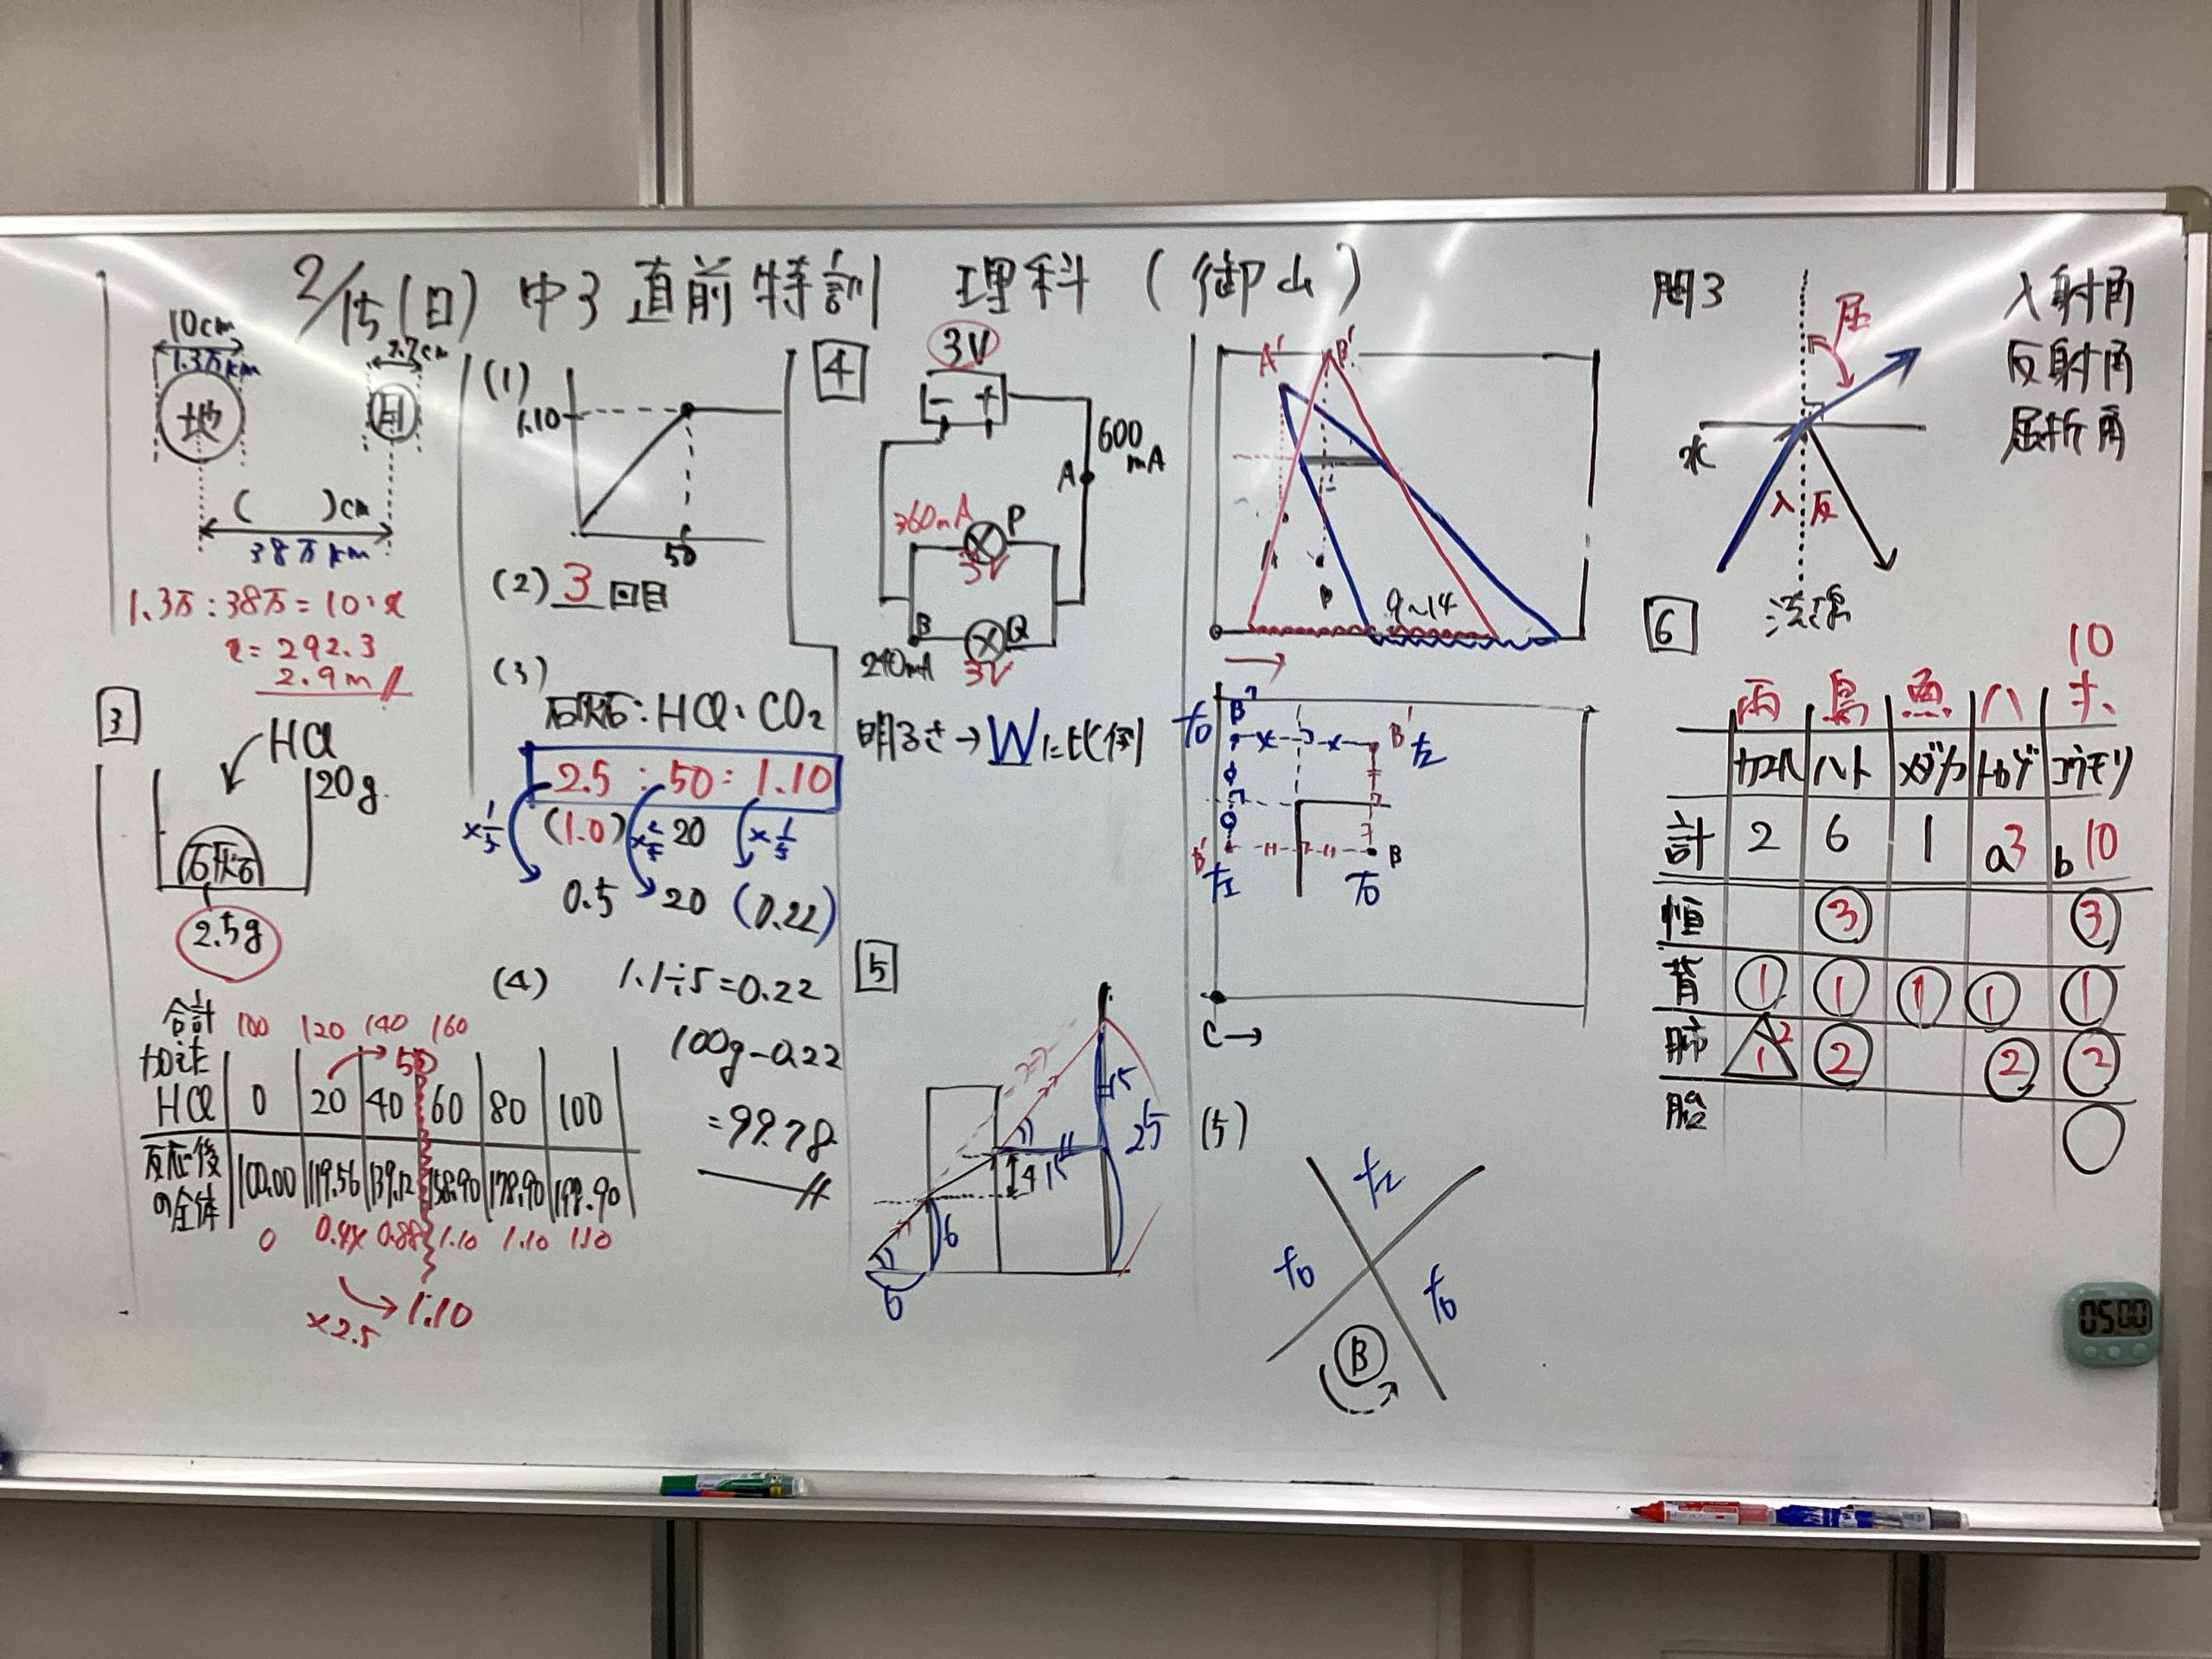 2/15(日) 中3 直前特訓 理科 (御山)
10cm
1.3万km
地
2.7cm
月
( )cm
38万km
1.3万:38万=10:x
x=292.3
2.9m
3
HCl
20g
石灰石
2.5g
合計 100 120 140 160
50
HCl 0 20 40 60 80 100
反応後の全体 100.00 119.56 139.12 158.90 178.90 198.90
0 0.44 0.88 1.10 1.10 1.10
×2.5 1.10
(1)
1.10
50
(2) 3 回目
(3)
石灰石:HCl:CO2
2.5:50:1.10
×1/5 (1.0) ×2/5 20 ×1/5
0.5 20 (0.22)
(4) 1.1÷5=0.22
100g-0.22
=99.78
4
3V
- +
600mA
A
360mA P
3V
B Q
240mA 3V
明るさ→Wに比例
5
15
25
15
4
6
6
A' B'
9~14
f0 B'
B' f2
B' f1
f0 B
C→
(5)
f2
f0
f0
B
問3
屈
水
入 反
法線
入射角
反射角
屈折角
6
10
両 鳥 魚 ハ ホ
カエル ハト メダカ トカゲ コウモリ
計 2 6 1 a3 b10
恒 3 3
背 1 1 1 1 1
肺 1 2 2 2 2
胎
05:00